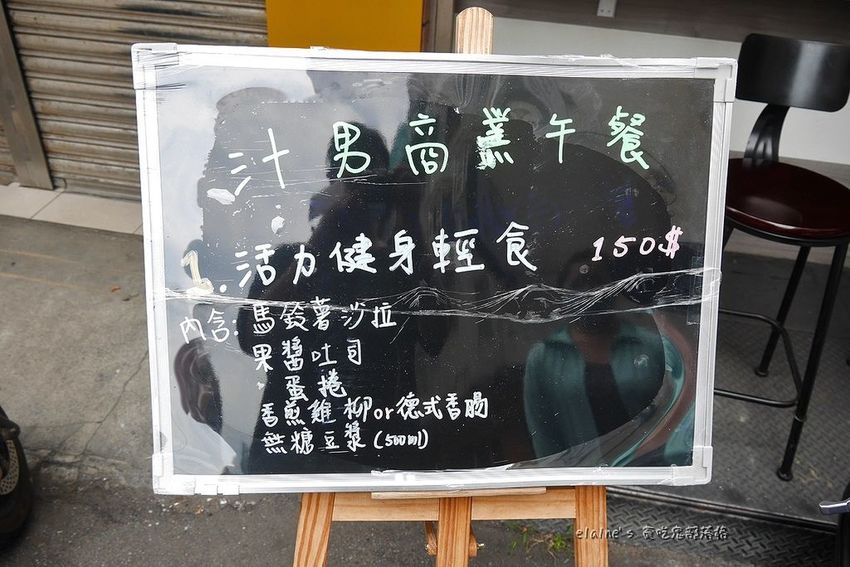 汁男商業午餐
1.活力健身輕食 150$
內含:馬鈴薯沙拉
果醬吐司
蛋捲
香煎雞柳or德式香腸
無糖豆漿(500ml)
elaine's 貪吃鬼部落格